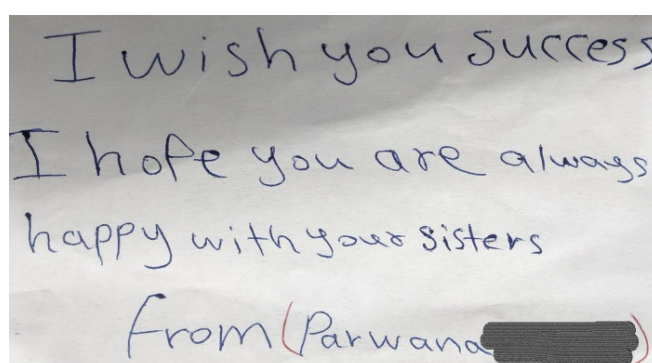 I wish you success
I hope you are always
happy with your sisters
from (Parwana )